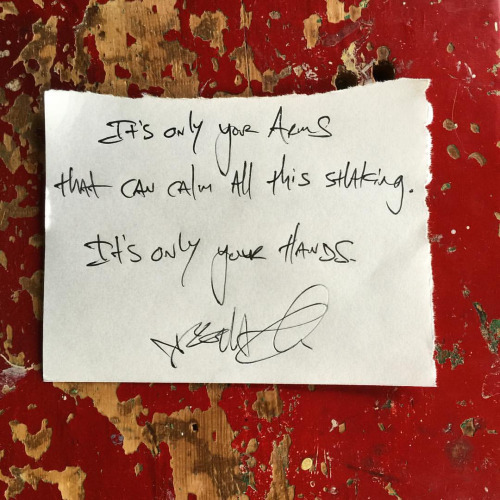 It's only your Arms
that can calm All this sHAKing.
It's only your HANDS.